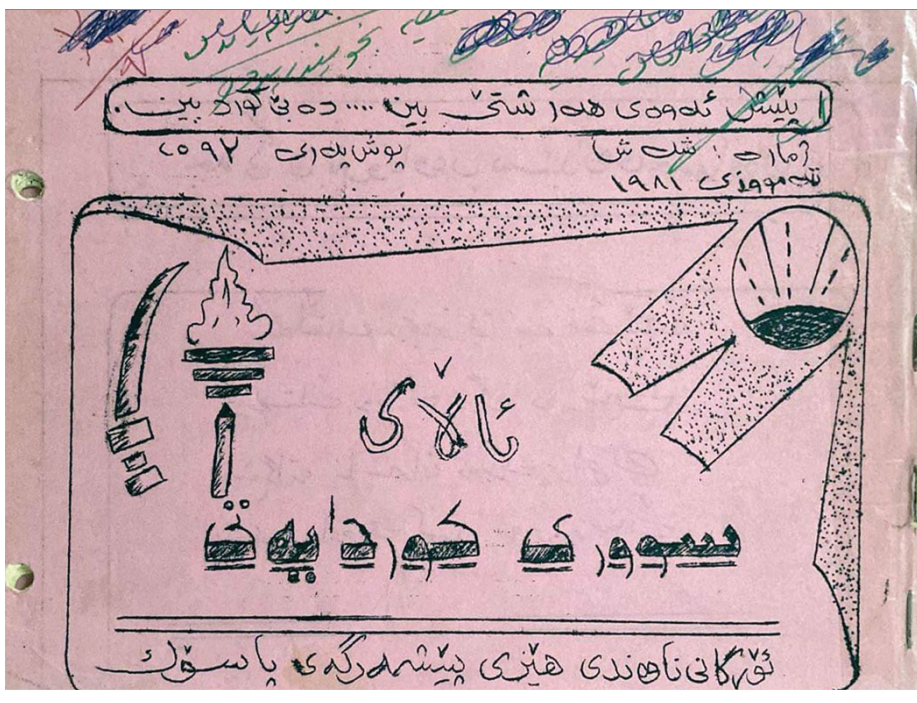 پێش ئەوەی هەر شتێ بین .... دەبێ کورد بین.
ژمارە : شەش
پوش پەڕی ٢٥٩٢
تەمووزی ١٩٨١
ئاڵای
سووری کوردایەتی
ئۆرگانی ناوەندی هێزی پێشمەرگەی پاسۆک